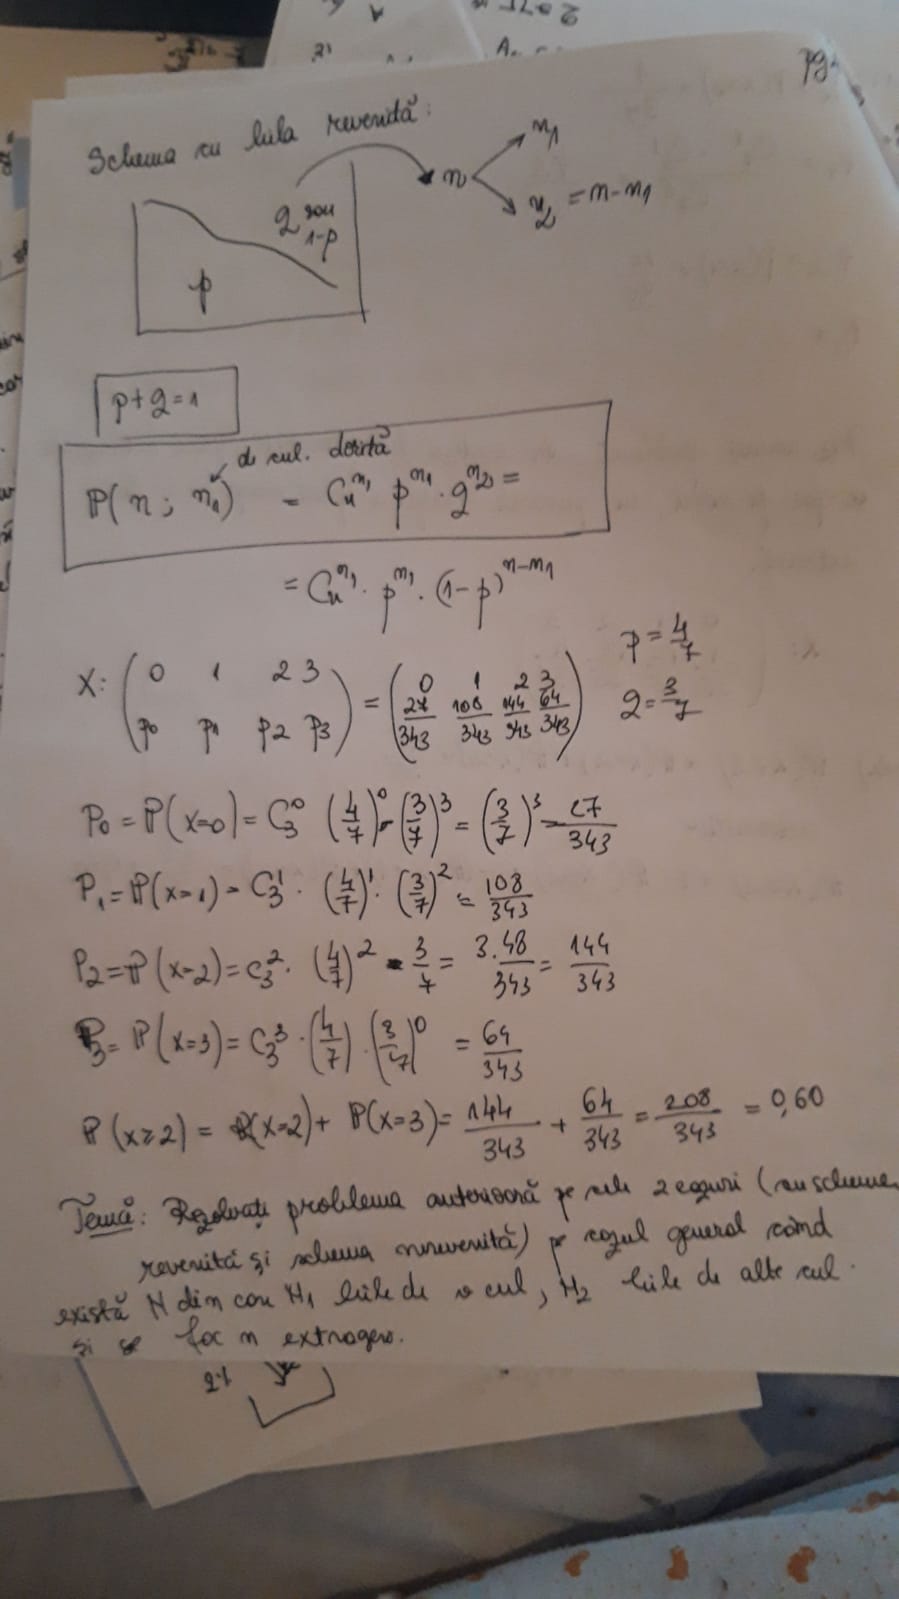 pg.
Schema cu bila revenită:
n n1
n2 = n-n1
q sau 1-p
p
p+q=1
de cul. dorită
P(n; n1) = Cn^n1 p^n1 · q^n2 =
= Cn^n1 · p^n1 · (1-p)^n-n1
p = 4/7
q = 3/7
X: (0 1 2 3 / p0 p1 p2 p3) = (0 1 2 3 / 27/343 108/343 144/343 64/343)
P0 = P(x=0) = C3^0 (4/7)^0 · (3/7)^3 = (3/7)^3 = 27/343
P1 = P(x=1) = C3^1 · (4/7)^1 · (3/7)^2 = 108/343
P2 = P(x=2) = C3^2 · (4/7)^2 · 3/7 = 3·48/343 = 144/343
P3 = P(x=3) = C3^3 · (4/7) · (3/7)^0 = 64/343
P(x≥2) = P(x=2) + P(x=3) = 144/343 + 64/343 = 208/343 = 0,60
Temă: Rezolvați problema anterioară pe cele 2 cazuri (cu schema
revenită și schema nerevenită) pe cazul general când
există N din care N1 bile de o cul, N2 bile de alte cul.
și se fac n extrageri.